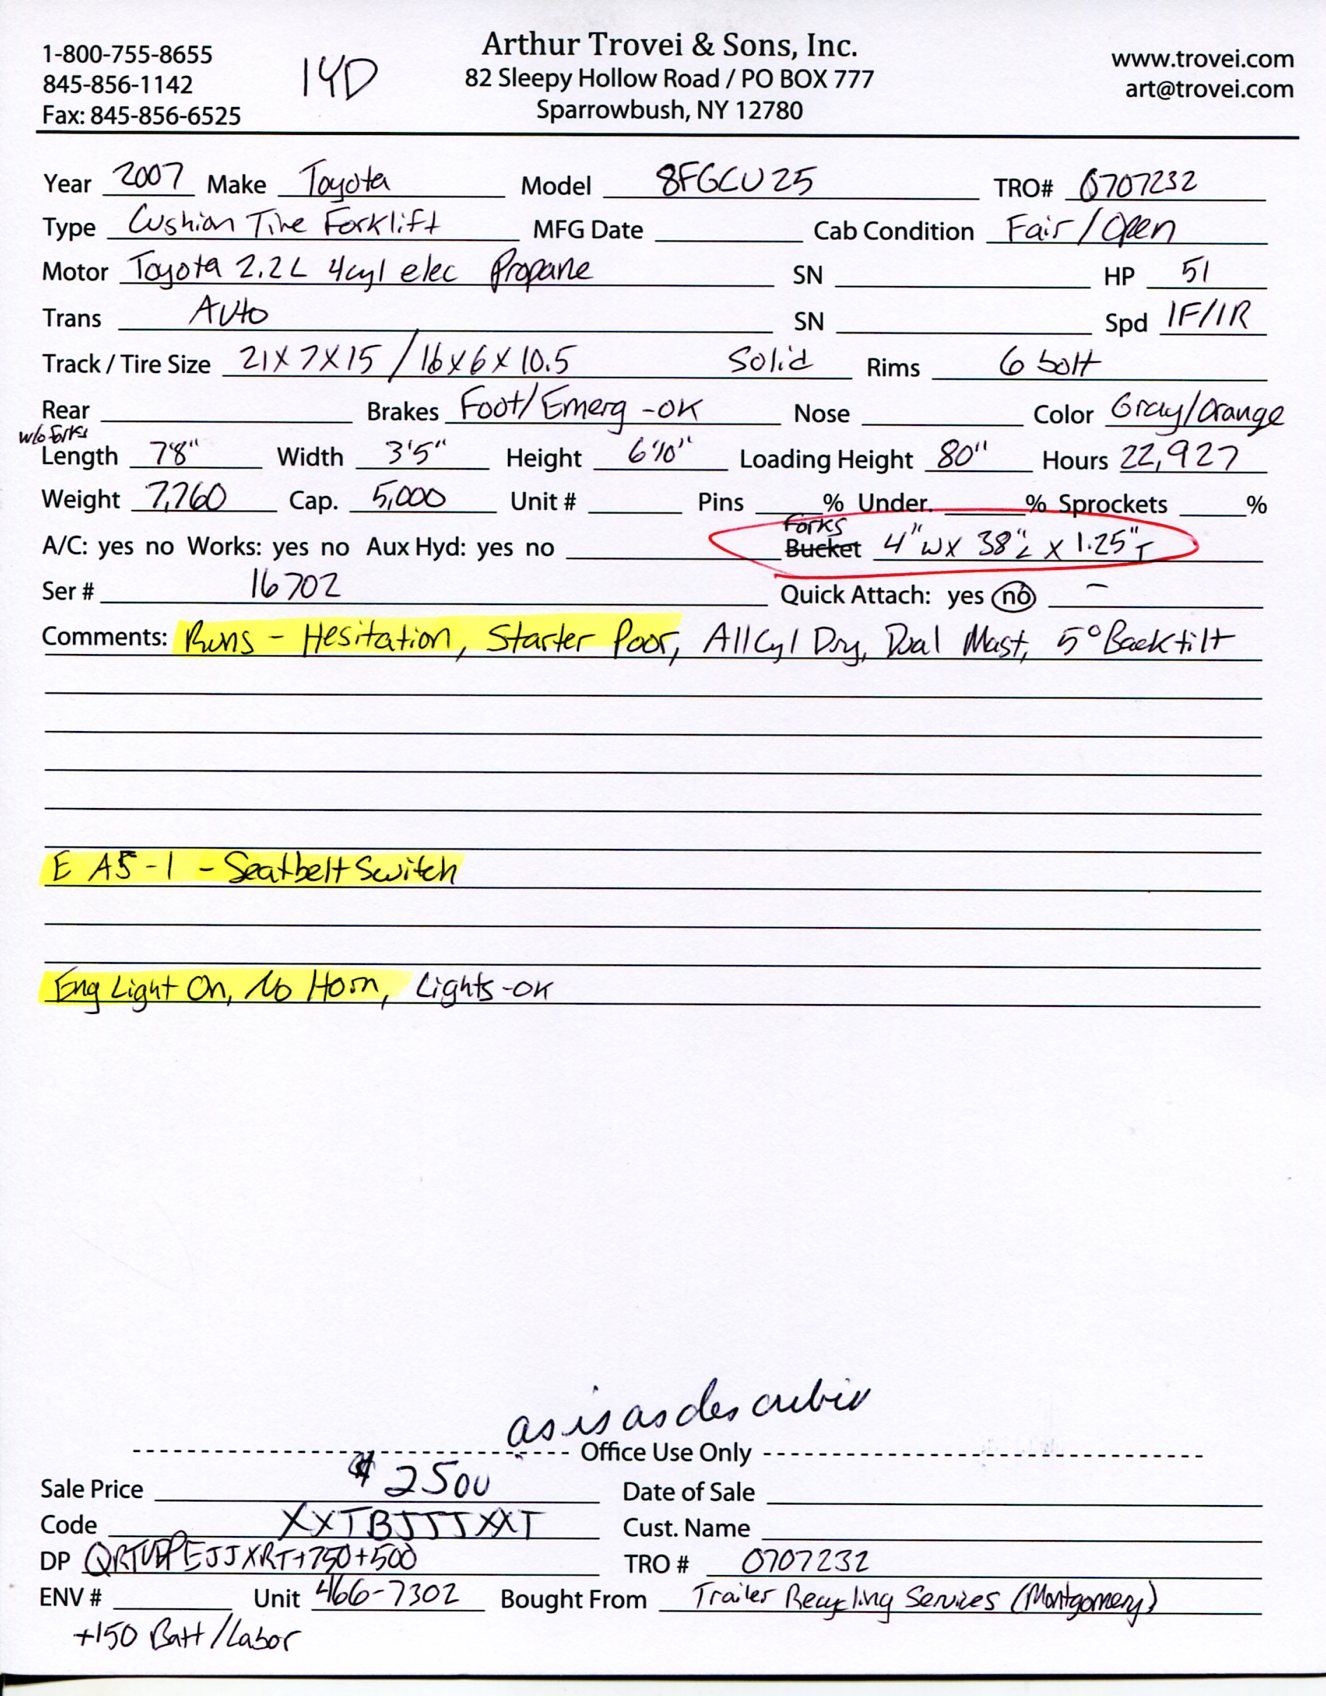 1-800-755-8655
845-856-1142
Fax: 845-856-6525
14D
Arthur Trovei & Sons, Inc.
82 Sleepy Hollow Road / PO BOX 777
Sparrowbush, NY 12780
www.trovei.com
art@trovei.com
Year 2007 Make Toyota Model 8FGCU25 TRO# 0707232
Type Cushion Tire Forklift MFG Date Cab Condition Fair/Open
Motor Toyota 2.2L 4cyl elec Propane SN HP 51
Trans Auto SN Spd 1F/1R
Track / Tire Size 21x7x15 / 16x6x10.5 Solid Rims 6 bolt
Rear Brakes Foot/Emerg -OK Nose Color Gray/Orange
w/o forks
Length 7'8" Width 3'5" Height 6'10" Loading Height 80" Hours 22,927
Weight 7,760 Cap. 5,000 Unit # Pins % Under. % Sprockets %
Forks
A/C: yes no Works: yes no Aux Hyd: yes no Bucket 4"W x 38"L x 1.25"T
Ser # 16702 Quick Attach: yes no –
Comments: Runs - Hesitation, Starter Poor, All Cyl Dry, Dual Mast, 5° Backtilt
E A5-1 - Seatbelt Switch
Eng Light On, No Horn, Lights -OK
as is as des
Office Use Only
Sale Price $2500 Date of Sale
Code XXTBJJJXXT Cust. Name
DP +750+500 TRO # 0707232
ENV # Unit 466-7302 Bought From Trailer Recycling Services (Montgomery)
+150 Batt/Labor